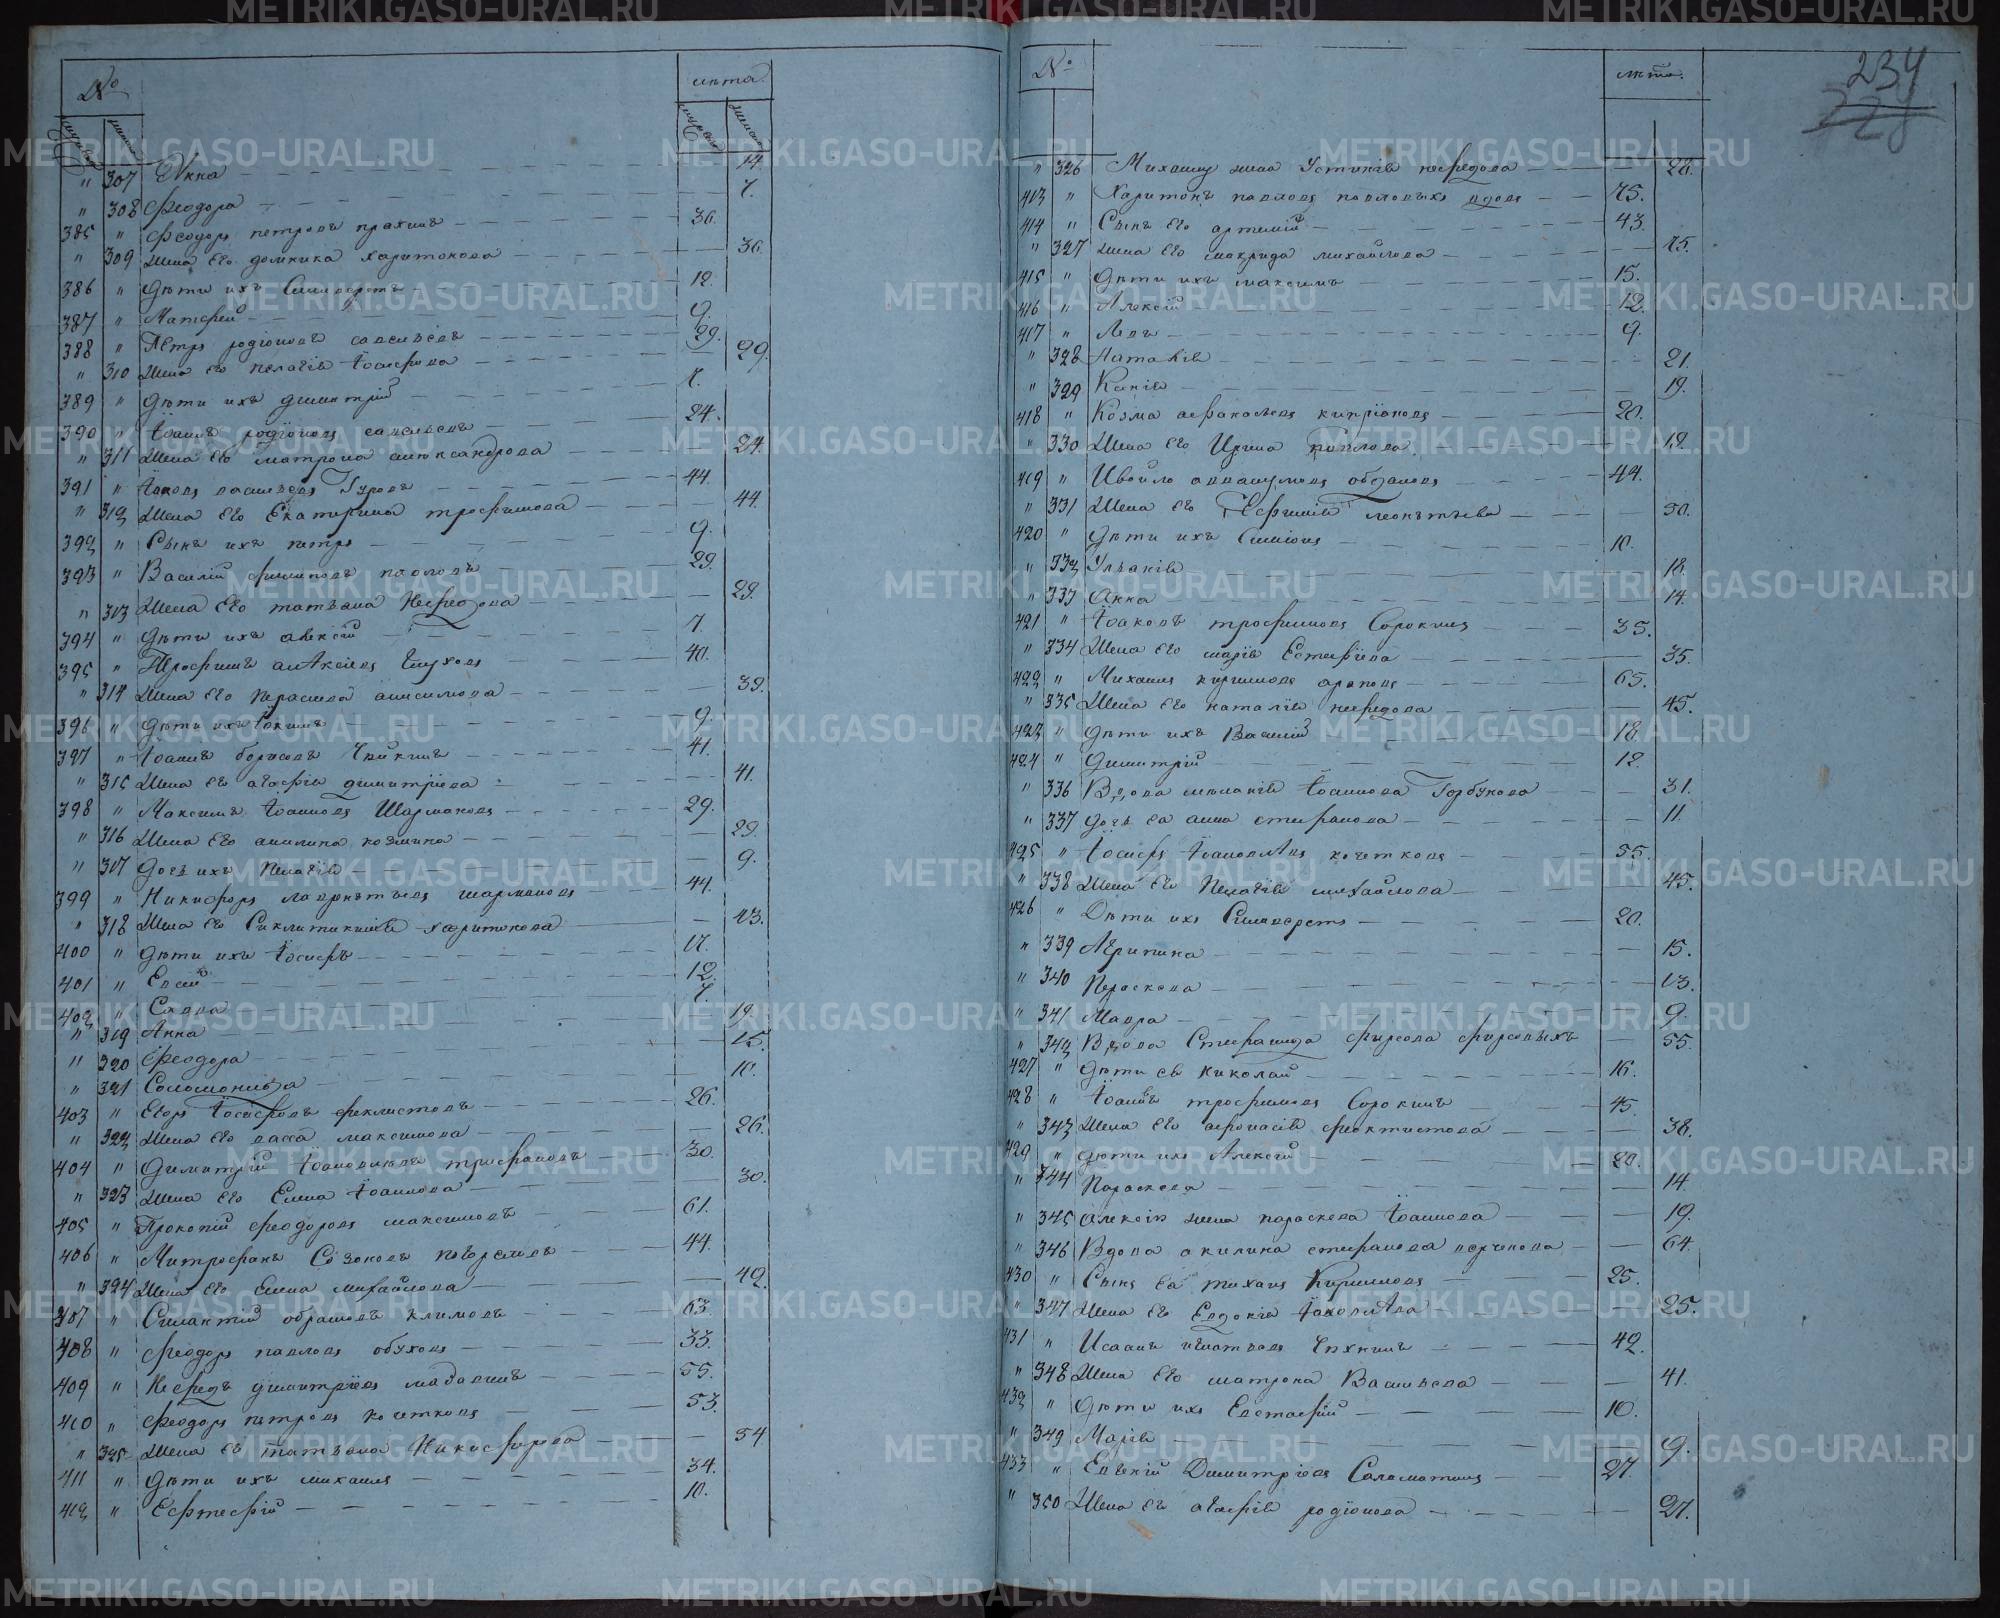 № лѣта
мужеск женск мужеск женск
" 307 Анна 14.
" 308 Феодора 7.
385 " Феодоръ петровъ 36.
" 309 Жена его домника харитонова 36.
386 " Дѣти ихъ Силиверстъ 12.
387 " Матфей 9.
388 " Петръ родіоновъ савельевъ 29.
" 310 Жена его пелагія Іосифова 29.
389 " Дѣти ихъ димитрій
390 " Іоаннъ родіоновъ савельевъ 24.
" 311 Жена его матрона александрова 24.
391 " Іаковъ васильевъ Гуровъ 44.
" 312 Жена его Екатерина трофимова 44.
392 " Сынъ ихъ петръ 9.
393 " Василій филиповъ павловъ 29.
" 313 Жена его татьяна Нефедова 29.
394 " Дѣти ихъ алексій 7.
395 " Трофимъ алексіевъ Глуховъ 40.
" 314 Жена его параскева анисимова 39.
396 " Дѣти ихъ Іоакимъ 9.
397 " Іоаннъ борисовъ 41.
" 315 Жена его агафія димитріева 41.
398 " Максимъ Іоанновъ Шармановъ 29.
" 316 Жена его акилина козмина 29.
" 317 Дочь ихъ Пелагія 9.
399 " Никифоръ лаврентьевъ шармановъ 44.
" 318 Жена его Синклитикія харитонова 43.
400 " Дѣти ихъ Іосифъ 17.
401 " Евсей 12.
402 " Савва 7.
" 319 Анна 19.
" 320 Феодора 15.
" 321 Соломонида 10.
403 " Егоръ Іосифовъ феклистовъ 26.
" 322 Жена его васса максимова 26.
404 " Димитрій Іоанновъ трифановъ 30.
" 323 Жена его Елена Іоаннова 30.
405 " Прокопій феодоровъ максимовъ 61.
406 " Митрофанъ Созоновъ 44.
" 324 Жена его Елена михайлова 42.
407 " Силантій абрамовъ климовъ 63.
408 " Феодоръ павловъ обуховъ 33.
409 " Нефедъ димитріевъ 55.
410 " Феодоръ петровъ кочетковъ 53.
" 325 Жена его татьяна Никифорова 54
411 " Дѣти ихъ михаилъ 34.
412 " Евстафій 10.
№ лѣта. 234
228
" 326 Михаилу жена Устинія нефедова 28.
413 " Харитонъ павловъ павловыхъ вдовъ 75.
414 " Сынъ его артемій 43.
" 327 Жена его макрида михайлова 45.
415 " Дѣти ихъ максимъ 15.
416 " Алексій 12.
417 " Левъ 9.
" 328 Наталія 21.
" 329 Ксенія 19.
418 " Козма афанасьевъ кипріяновъ 20.
" 330 Жена его Ирина павлова 19.
419 " 44.
" 331 Жена его Евфимія леонтьева 50.
420 " Дѣти ихъ Симіонъ 10.
" 332 Ульянія 18.
" 333 Анна 14.
421 " Іаковъ трофимовъ Сорокинъ 35.
" 334 Жена его марія Естафіева 35.
422 " Михаилъ кириловъ араповъ 65.
" 335 Жена его наталія нефедова 45.
423 " Дѣти ихъ Василій 18.
424 " Димитрій 12.
" 336 Вдова меланія Іоаннова Горбунова 31.
" 337 Дочь ея анна стефанова 11.
425 " Іосифъ кочетковъ 55.
" 338 Жена его Пелагія михайлова 45.
426 " Дѣти ихъ Силиверстъ 20.
" 339 Агрипина 15.
" 340 Параскева 13.
" 341 Мавра 9.
" 342 Вдова Стефанида фирсова фирсовыхъ 55.
427 " Дѣти ея николай 16.
428 " Іоаннъ трофимовъ Сорокинъ 45.
" 343 Жена его афонасія феоктистова 38.
429 " Дѣти ихъ Алексій 20.
" 344 Параскева 14
" 345 Алексія жена параскева Іоаннова 19.
" 346 Вдова акилина стефанова 64.
430 " Сынъ ея тихонъ Кириловъ 25.
" 347 Жена его Евдокія 25.
431 " Исаакъ игнатьевъ 42.
" 348 Жена его матрона Васильева 41.
432 " Дѣти ихъ Евстафій 10.
" 349 Марія 9.
433 " Евгеній Димитріевъ Саламатинъ 27.
" 350 Жена его агафія родіонова 27.
METRIKI.GASO-URAL.RU